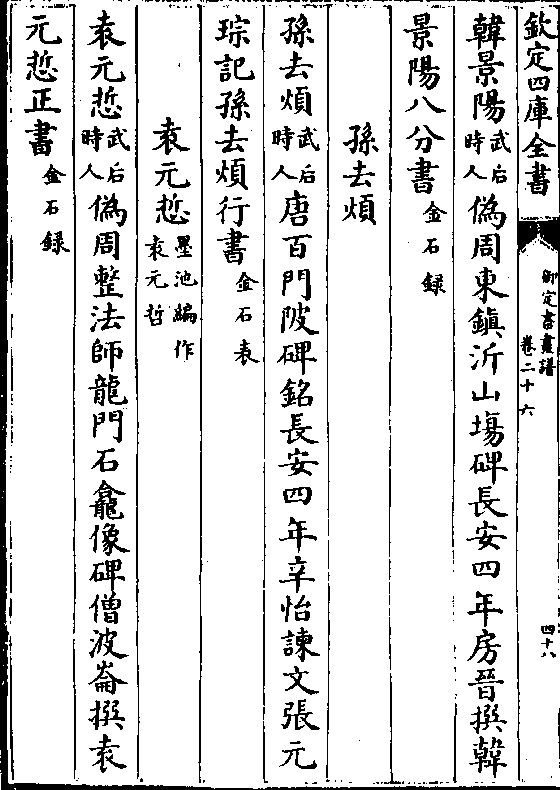 欽定四庫全書
御定書畫譜
卷二十六
四十八
韓景陽武后時人偽周東鎮沂山塲碑長安四年房晉撰韓
景陽八分書金石録
孫去煩
孫去煩武后時人唐百門陂碑銘長安四年辛怡諫文張元
琮記孫去煩行書金石表
袁元悊墨池編作袁元哲
袁元悊武后時人偽周整法師龍門石龕像碑僧波崙撰袁
元悊正書金石録